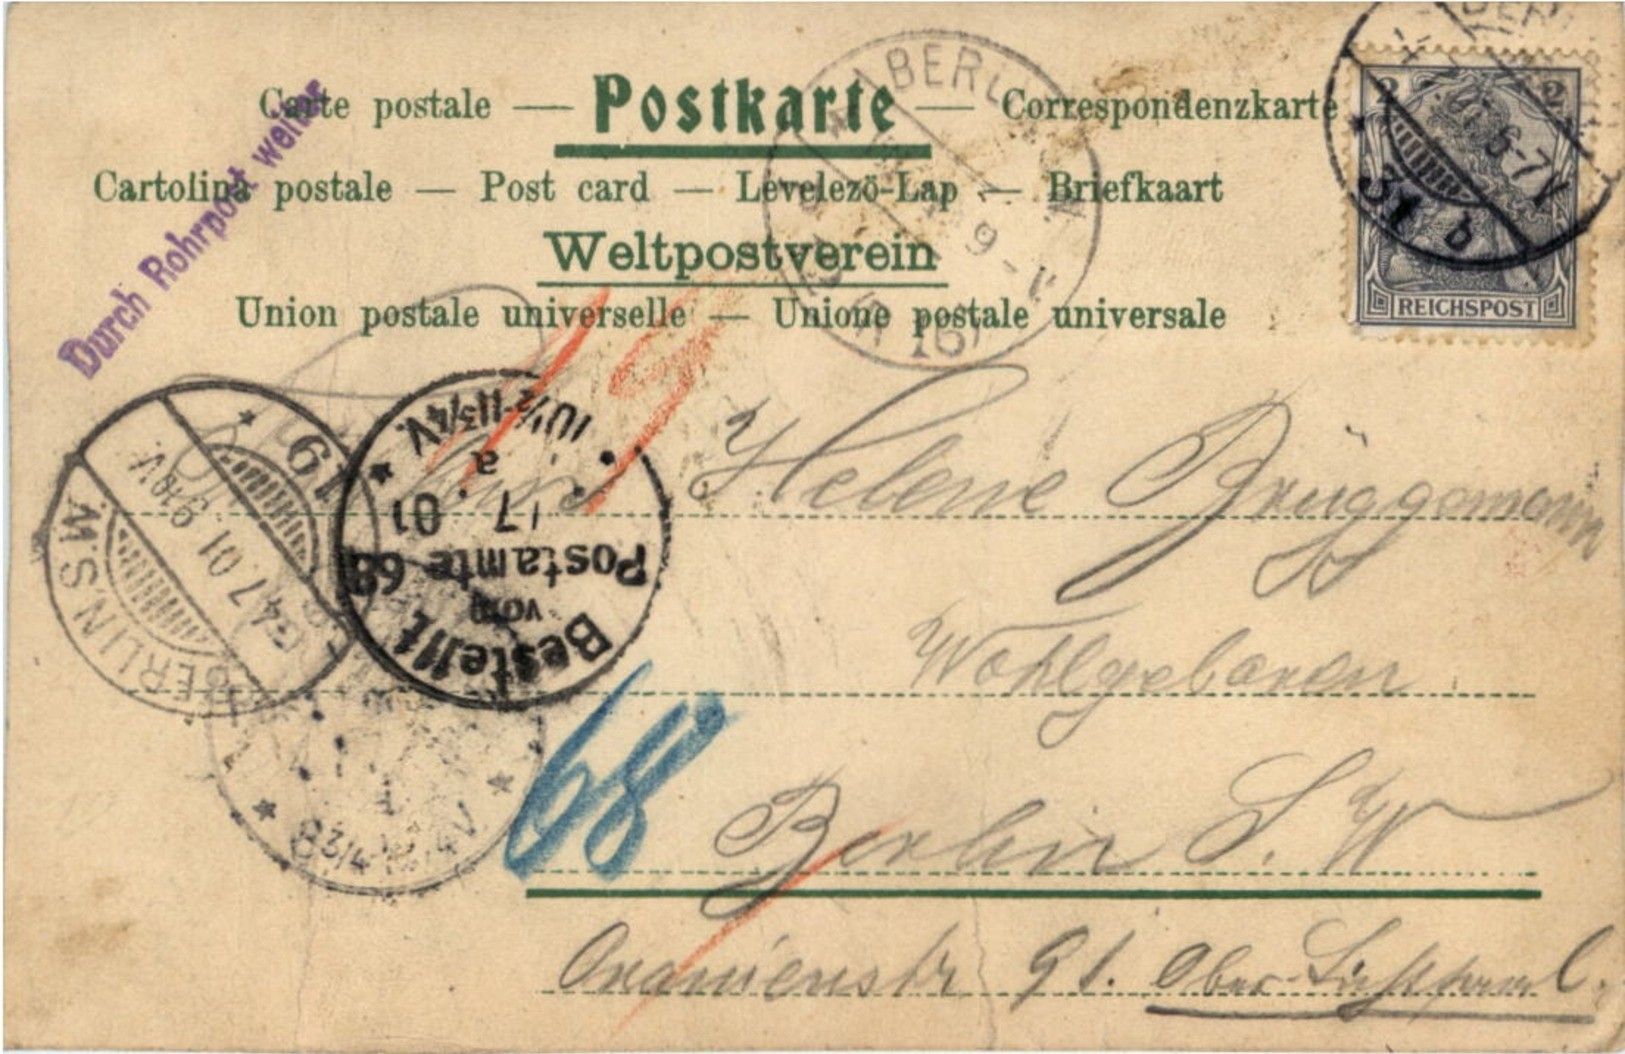 Carte postale — Postkarte — Correspondenzkarte
Cartolina postale — Post card — Levelezö-Lap — Briefkaart
Weltpostverein
Union postale universelle — Unione postale universale
Durch Rohrpost weiter
2 2
REICHSPOST
6-7V
31 b
9-
BERLIN S.W.
19
4.7.01. 9-10V.
Bestellt
vom
Postamte 68
7. 01
a
10½-11¾V.
8 3/4
68
Helene Brüggemann
Wohlgeboren
Berlin S. W
Oranienstr 91. Ober